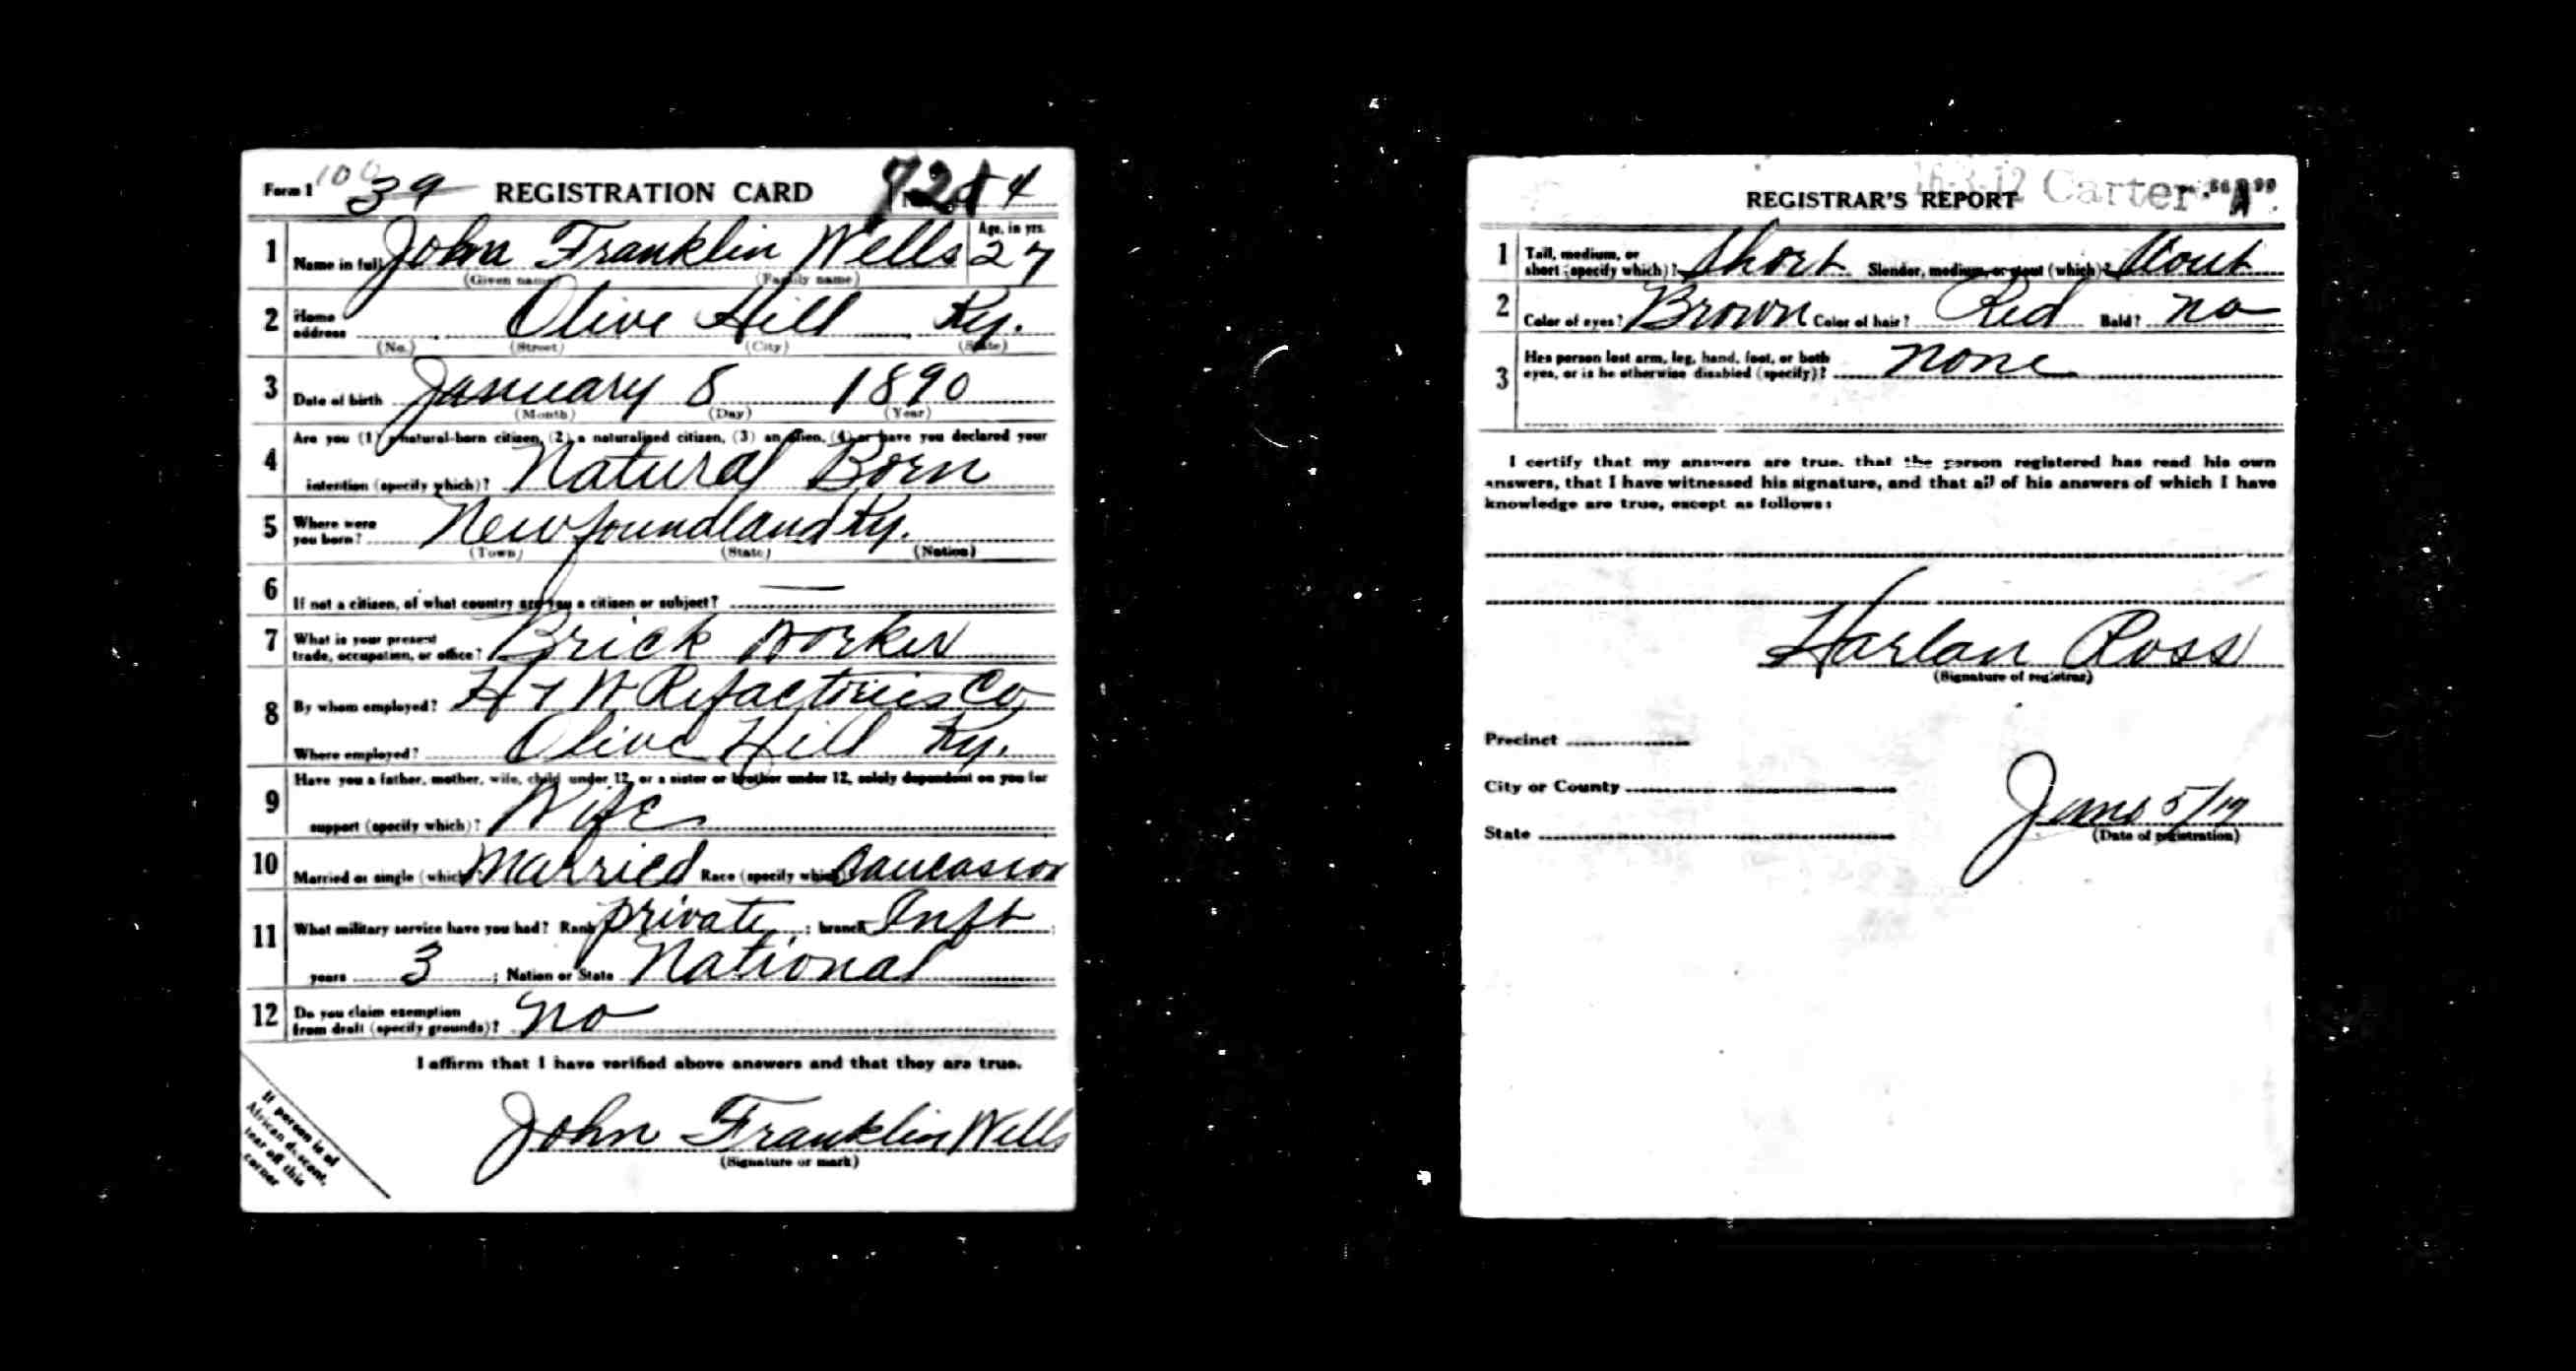 Form 1 39 REGISTRATION CARD
1 Name in full John Franklin Wells Age, in yrs. 27
(Given name) (Family name)
2 Home address Olive Hill Ky.
(No.) (Street) (City) (State)
3 Date of birth January 8 1890
(Month) (Day) (Year)
Are you (1) a natural-born citizen, (2) a naturalized citizen, (3) an alien, (4) or have you declared your
4 intention (specify which)? Natural Born
5 Where were you born? Newfoundland Ky.
(Town) (State) (Nation)
6 If not a citizen, of what country are you a citizen or subject? —
7 What is your present trade, occupation, or office? Brick Worker
8 By whom employed? H + W Refactories Co
Where employed? Olive Hill Ky.
Have you a father, mother, wife, child under 12, or a sister or brother under 12, solely dependent on you for
9 support (specify which)? Wife
10 Married or single (which)? Married Race (specify which)? Caucasion
11 What military service have you had? Rank private ; branch Inft ;
years 3 ; Nation or State National
12 Do you claim exemption from draft (specify grounds)? No
I affirm that I have verified above answers and that they are true.
John Franklin Wells
(Signature or mark)
If person is of
African descent,
tear off this
corner
16-3-12 Carter "A"
REGISTRAR'S REPORT
1 Tall, medium, or short (specify which)? Short Slender, medium, or stout (which)? Stout
2 Color of eyes? Brown Color of hair? Red Bald? No
3 Has person lost arm, leg, hand, foot, or both eyes, or is he otherwise disabled (specify)? None
I certify that my answers are true, that the person registered has read his own
answers, that I have witnessed his signature, and that all of his answers of which I have
knowledge are true, except as follows:
Harlan Ross
(Signature of registrar)
Precinct
City or County
State
June 5/17
(Date of registration)